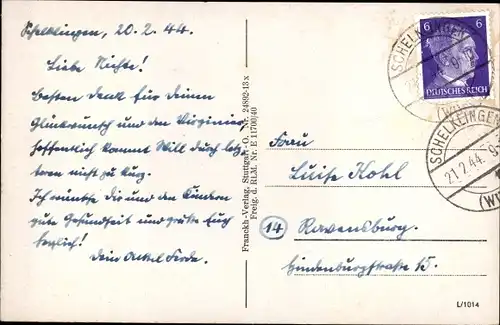 Schelklingen, 20.2.44.
Liebe Nichte!
besten Dank für Deinen
Glückwunsch und den Virginier
hoffentlich kommt Willi durch
nicht zu kurz.
Ich wünsche Dir und den Kindern
gute Gesundheit und grüße Euch
herzlich!
Dein Onkel
Franckh-Verlag, Stuttgart-O. Nr. 24892-13 x
Freig. d. RLM. Nr. E 11700/40
6 6
DEUTSCHES REICH
SCHELKLINGEN
SCHELKLINGEN
21.2.44.
(WÜ
Frau
Luise Kohl
14 Ravensburg.
Hindenburgstraße 15.
L/1014